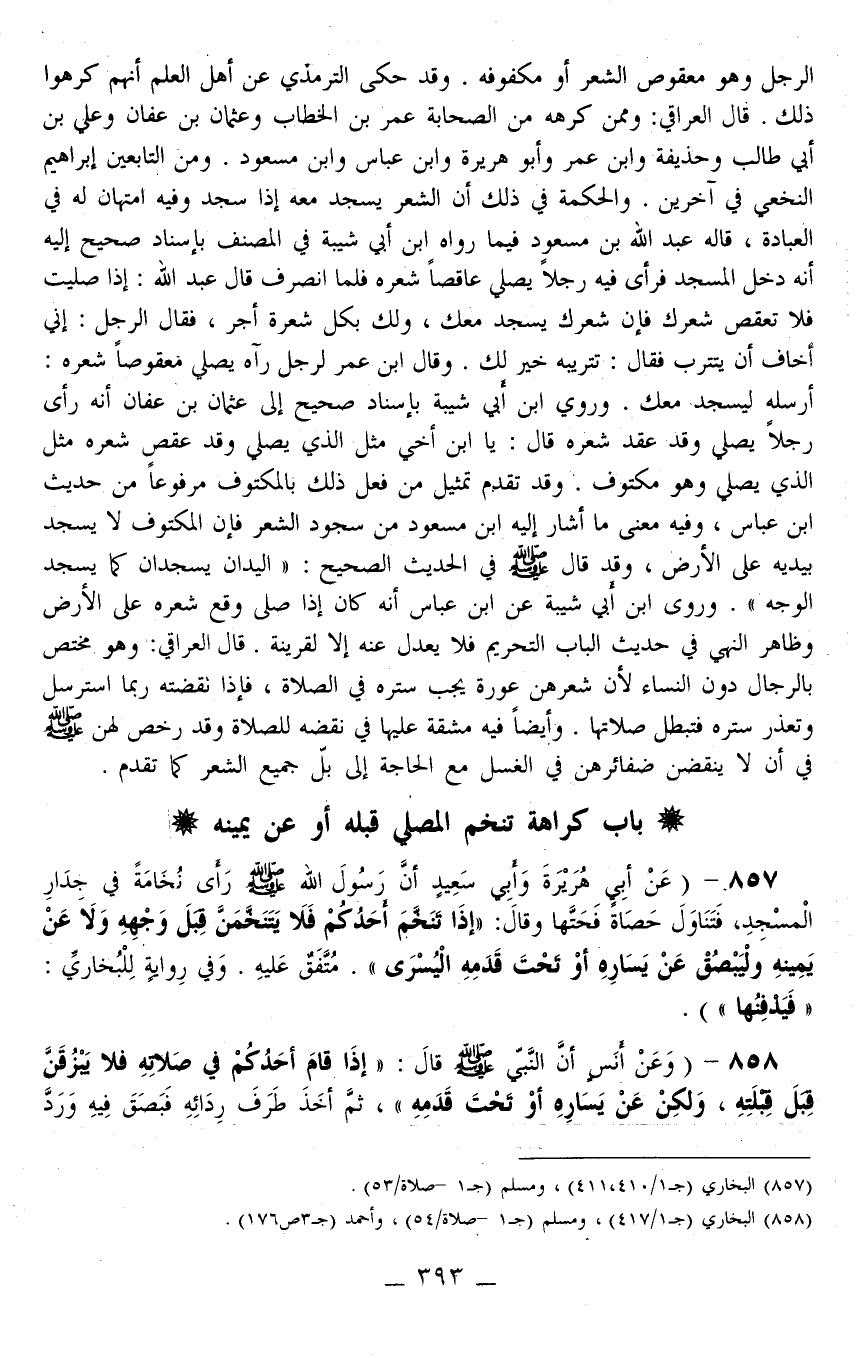 الرجل وهو معقوص الشعر أو مكفوفه . وقد حكى الترمذي عن أهل العلم أنهم كرهوا
ذلك . قال العراقي: وممن كرهه من الصحابة عمر بن الخطاب وعثمان بن عفان وعلي بن
أبي طالب وحذيفة وابن عمر وأبو هريرة وابن عباس وابن مسعود . ومن التابعين إبراهيم
النخعي في آخرين . والحكمة في ذلك أن الشعر يسجد معه إذا سجد وفيه امتهان له في
العبادة ، قاله عبد الله بن مسعود فيما رواه ابن أبي شيبة في المصنف بإسناد صحيح إليه
أنه دخل المسجد فرأى فيه رجلاً يصلي عاقصاً شعره فلما انصرف قال عبد الله : إذا صليت
فلا تعقص شعرك فإن شعرك يسجد معك ، ولك بكل شعرة أجر ، فقال الرجل : إني
أخاف أن يتترب فقال : تتريبه خير لك . وقال ابن عمر لرجل رآه يصلي معقوصاً شعره :
أرسله ليسجد معك . وروي ابن أبي شيبة بإسناد صحيح إلى عثمان بن عفان أنه رأى
رجلاً يصلي وقد عقد شعره قال : يا ابن أخي مثل الذي يصلي وقد عقص شعره مثل
الذي يصلي وهو مكتوف . وقد تقدم تمثيل من فعل ذلك بالمكتوف مرفوعاً من حديث
ابن عباس ، وفيه معنى ما أشار إليه ابن مسعود من سجود الشعر فإن المكتوف لا يسجد
بيديه على الأرض ، وقد قال ﷺ في الحديث الصحيح : « اليدان يسجدان كما يسجد
الوجه » . وروى ابن أبي شيبة عن ابن عباس أنه كان إذا صلى وقع شعره على الأرض
وظاهر النهي في حديث الباب التحريم فلا يعدل عنه إلا لقرينة . قال العراقي: وهو مختص
بالرجال دون النساء لأن شعرهن عورة يجب ستره في الصلاة ، فإذا نقضته ربما استرسل
وتعذر ستره فتبطل صلاتها . وأيضاً فيه مشقة عليها في نقضه للصلاة وقد رخص لهن ﷺ
في أن لا ينقضن ضفائرهن في الغسل مع الحاجة إلى بلّ جميع الشعر كما تقدم .
باب كراهة تنخم المصلي قبله أو عن يمينه
٨٥٧ – ( عَنْ أبِي هُرَيْرَةَ وَأَبِي سَعِيدٍ أنَّ رَسُولَ الله ﷺ رَأَى نُخَامَةً في جِدَارِ
الْمسْجِدِ، فَتَنَاوَلَ حَصَاةً فَحَتَّها وقالَ: «إذَا تَنَخَّمَ أَحَدُكُمْ فَلَا يَتَنَخَّمَنَّ قِبَلَ وَجْهِهِ وَلَا عَنْ
يَمِينهِ ولْيَبْصُقْ عَنْ يَسَارِهِ أوْ تَحْتَ قَدَمِهِ الْيُسْرَى » . مُتَّفَقٌ عَليهِ . وَفي رِوايةٍ لِلْبُخاريِّ :
« فَيَدْفِنُها » ) .
٨٥٨ – ( وَعَنْ أَنَسٍ أنَّ النَّبّي ﷺ قالَ : « إذَا قامَ أحَدُكُمْ في صَلاتِهِ فلا يَبْزُقَنَّ
قِبَلَ قِبْلَتِهِ ، وَلكِنْ عَنْ يَسَارِهِ أوْ تَحْتَ قَدَمِهِ » ، ثمَّ أخَذَ طَرَفَ رِدَائِهِ فَبَصَقَ فِيهِ وَرَدَّ
(٨٥٧) البخاري (جـ١/٤١١،٤١٠) ، ومسلم (جـ١ –صلاة/٥٣) .
(٨٥٨) البخاري (جـ١/٤١٧) ، ومسلم (جـ١ –صلاة/٥٤) ، وأحمد (جـ٣ص١٧٦) .
– ٣٩٣ –